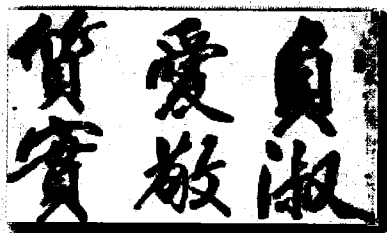 貞淑
愛敬
質實